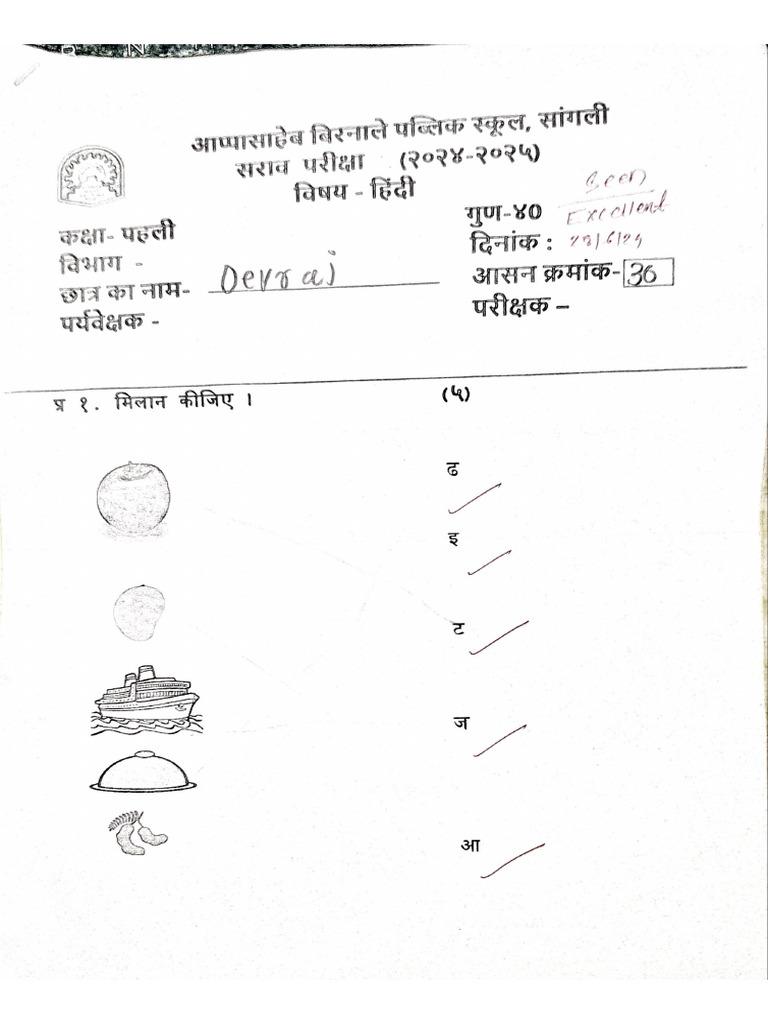 आप्पासाहेब बिरनाले पब्लिक स्कूल, सांगली
सराव परीक्षा (२०२४-२०२५)
विषय - हिंदी
Seen
गुण-४०
Excellent
कक्षा- पहली
दिनांक :
विभाग -
आसन क्रमांक- 36
छात्र का नाम- Devraj
परीक्षक –
पर्यवेक्षक -
प्र १. मिलान कीजिए । (५)
ढ
इ
ट
ज
आ